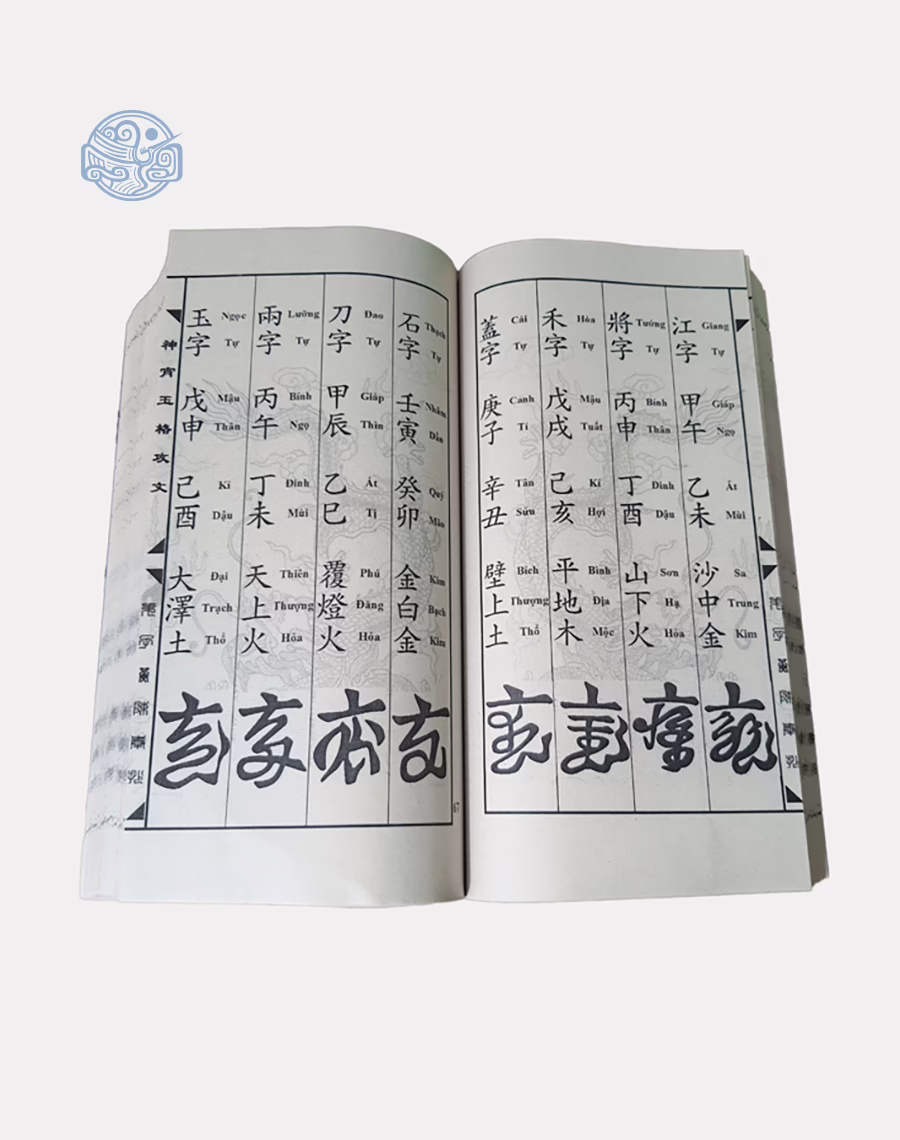 江字甲午乙未沙中金
Giang Tự Giáp Ngọ Ất Mùi Sa Trung Kim
將字丙申丁酉山下火
Tướng Tự Bính Thân Đinh Dậu Sơn Hạ Hỏa
禾字戊戌己亥平地木
Hòa Tự Mậu Tuất Kỉ Hợi Bình Địa Mộc
蓋字庚子辛丑壁上土
Cái Tự Canh Tí Tân Sửu Bích Thượng Thổ
石字壬寅癸卯金白金
Thạch Tự Nhâm Dần Quý Mão Kim Bạch Kim
刀字甲辰乙巳覆燈火
Đao Tự Giáp Thìn Ất Tị Phú Đăng Hỏa
兩字丙午丁未天上火
Lưỡng Tự Bính Ngọ Đinh Mùi Thiên Thượng Hỏa
玉字戊申己酉大澤土
Ngọc Tự Mậu Thân Kỉ Dậu Đại Trạch Thổ
神宵玉格攻文
67